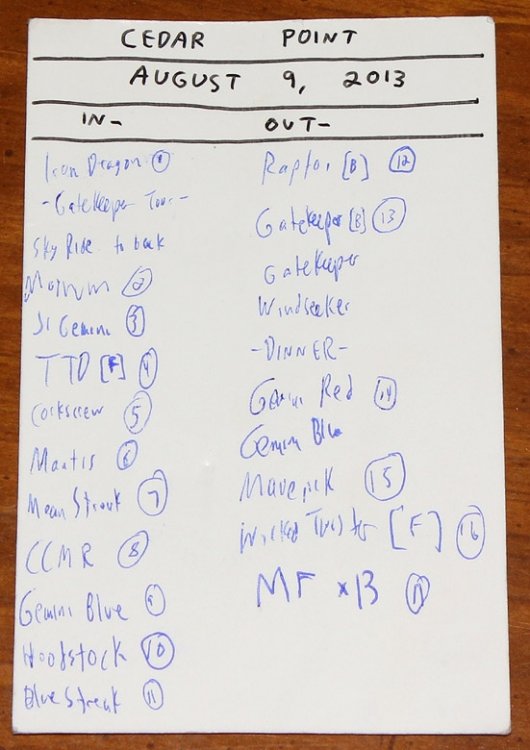 CEDAR POINT
AUGUST 9, 2013
IN-
Iron Dragon 1
-GateKeeper Tour-
Sky Ride to back
Magnum 2
Jr Gemini 3
TTD [F] 4
Corkscrew 5
Mantis 6
Mean Streak 7
CCMR 8
Gemini Blue 9
Woodstock 10
Blue Streak 11
OUT-
Raptor [B] 12
Gatekeeper [B] 13
GateKeeper
Windseeker
-DINNER-
Gemini Red 14
Gemini Blue
Maverick 15
Wicked Twister [F] 16
MF x13 17